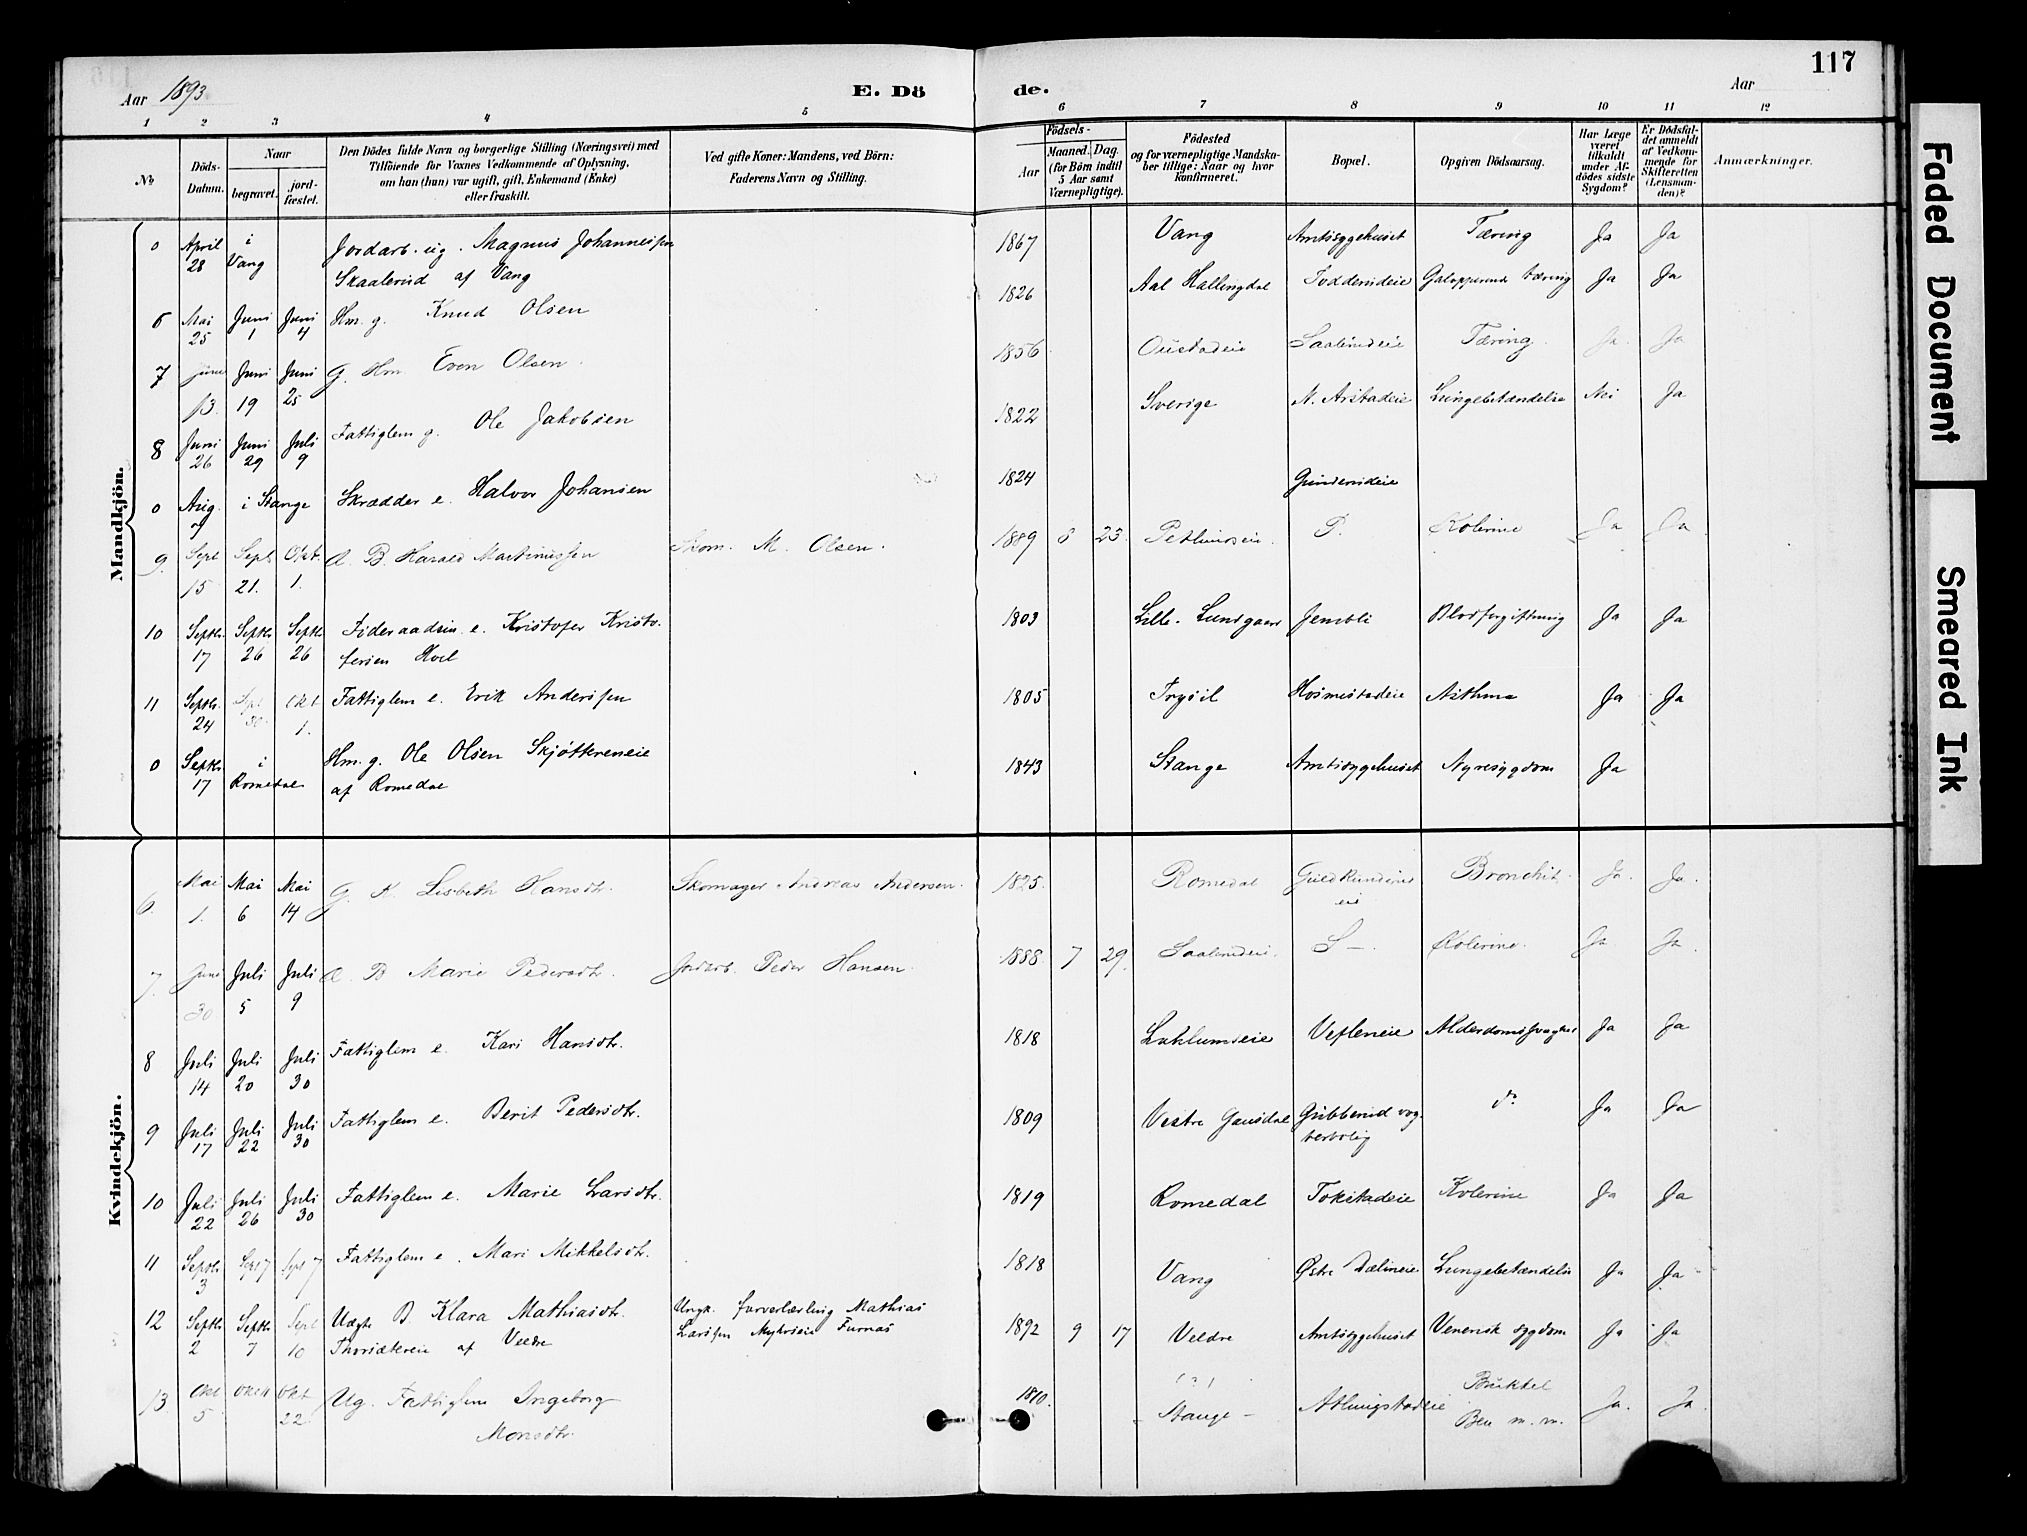 117
Aar 1893
E. Dö
de.
Aar
1 2 3 4 5 6 7 8 9 10 11 12
No
Döds-Datum.
Naar
begravet.
jord-fæstet.
Den Dödes fulde Navn og borgerlige Stilling (Næringsvei) med
Tilföiende for Voxnes Vedkommende af Oplysning,
om han (hun) var ugift, gift, Enkemand (Enke)
eller fraskilt.
Ved gifte Koner: Mandens, ved Börn:
Faderens Navn og Stilling.
Födsels-
Aar
Maaned. Dag.
(for Börn indtil
5 Aar samt
Værnepligtige).
Födested
og for værnepligtige Mandska-
ber tillige: Naar og hvor
konfirmeret.
Bopæl.
Opgiven Dödsaarsag.
Har Læge
været
tilkaldt
under Af-
dödes sidste
Sygdom?
Er Dödsfal-
det anmeldt
af Vedkom-
mende for
Skifteretten
(Lensman-
den)?
Anmærkninger.
Mandkjön.
0 April 28 i Vang Jordarb. ug. Magnus Johannessen Skaalerud af Vang 1867 Vang Amtssygehuset Tæring Ja Ja
6 Mai 25 Juni 1 Juni 4 Hm. g. Knud Olsen 1826 Aal Hallingdal Galopperende tæring Ja Ja
7 Juni 13. Juni 19 Juni 25 G. Hm. Even Olsen. 1856 Saalerudeie Tæring. Ja. Ja
8 Juni 26 Juni 29 Juli 9 Fattiglem g. Ole Jakobsen 1822 Sverige N. Arstadeie Lungebetændelse Nei Ja
0 Aug. 7 i Stange Skrædder e. Halvor Johansen 1824
9. Sept 15 Sept 21. Okt. 1. Æ. B. Harald Martinussen Skom. M. Olsen. 1889 23. Kolerine Ja Ja
10 Septbr. 17 Septbr 26 Septbr 26 Føderaadsm. e. Kristofer Kristofersen Hoel 1803 Lille-Lundgaard Jemtli Blodforgiftning Ja Ja
11 Septbr. 24 Sept 30. Okt 1. Fattiglem e. Erik Anderssen 1805 Trysil Hosmestadeie Asthma Ja Ja
0 Septbr 17 i Romedal Hm. g. Ole Olsen Skjøttereneie af Romedal 1843 Stange Amtssygehuset Nyresygdom Ja
Kvindekjön.
6. Mai 1. Mai 6 Mai 14 G. K. Lisbeth Hansdtr. Skomager Andreas Andersen. 1825. Romedal eie Bronchit. Ja. Ja.
7. Juni 30 Juli 5 Juli 9 Æ. B Marie Pedersdtr. Jordarb. Peder Hansen. 1888. 7 29. Saalerudeie. S—. Kolerine. Ja Ja.
8 Juli 14 Juli 20 Juli 30 Fattiglem e. Kari Hansdtr. 1818 Lukkumseie Vefleneie Alderdomssvaghed Ja Ja
9 Juli 17 Juli 22 Juli 30 Fattiglem e. Berit Pedersdtr. 1809 Vestre Gausdal Gubberud vogterbolig do Ja Ja
10 Juli 22 Juli 26 Juli 30 Fattiglem e. Marie Larsdtr. 1819 Romedal Tokstadeie Kolerine Ja Ja
11 Septbr 3 Sept 7 Sept 7 Fattiglem e. Mari Mikkelsdtr. 1818 Vang Østre Dælineie Lungebetændelse Ja Ja
12 Septbr 2 Septbr 7 Sept 10 Uægte B. Klara Mathiasdtr. af Veldre Ungk. farverlærling Mathias Larssen Furnæs 1892 9 17 Veldre Amtssygehuset Venerisk sygdom Ja Ja
13 Okt 5 Okt 11 Okt 22. Ug. Fattiglem Ingeborg Monsdtr. 1810. (?) Stange Atlungstadeie Brukket Ben m. m. Ja. Ja.
Faded Document
Smeared Ink